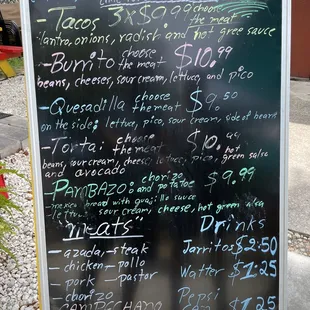 -Tacos 3x$9.99 choose the meat
onions, radish and hot green sauce
-Burrito choose the meat $10.99
beans, cheeses, sour cream, lettuce, and pico
-Quesadilla choose the meat $9.50
on the side: lettuce, pico, sour cream, side of beans
-Torta: choose the meat $10.
beans, sour cream, cheese, lettuce, pico, hot green salsa
and avocado
PAMBAZO: chorizo and potatoe $9.99
bread with sauce
lettuce, sour cream, cheese, hot green salsa
"Meats" Drinks
-azada, -steak Jarritos $2.50
-chicken -pollo Watter $1.25
-pork -pastor
-chorizo Pepsi $1.25
CAMPECHANO